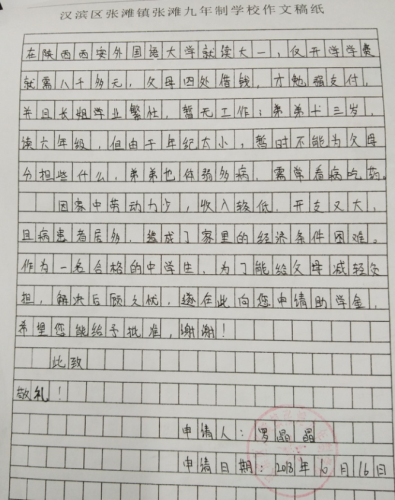 汉滨区张滩镇张滩九年制学校作文稿纸
在陕西西安外国语大学就读大一，仅开学学费
就需八千多元，父母四处借钱，才勉强支付，
并且长姐学业繁忙，暂无工作；弟弟十三岁，
读六年级，但由于年纪太小，暂时不能为父母
分担些什么，弟弟也体弱多病，需常看病吃药。
因家中劳动力少，收入较低，开支又大，
且病患者居多，造成了家里的经济条件困难。
作为一名合格的中学生，为了能给父母减轻负
担，解决后顾之忧，遂在此向您申请助学金，
希望您能给予批准，谢谢！
此致
敬礼！
申请人：罗晶晶
申请日期：2018年10月16日